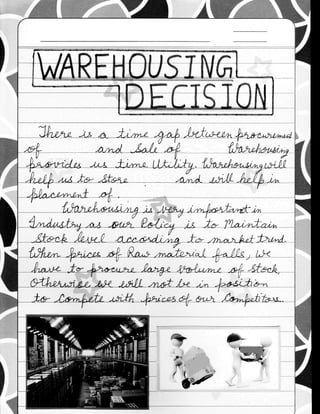 WAREHOUSING
DECISION
There is a time gap between procurement
of and Sale of Warehousing
provides us time Utility. Warehousing will
help us to Store and will help in
placement of .
Warehousing is very important in
Industry as our Policy is to Maintain
Stock level according to market trend.
When prices of Raw material falls, we
have to procure large volume of stock,
Otherwise we will not be in position
to Compete with prices of our Competitors.